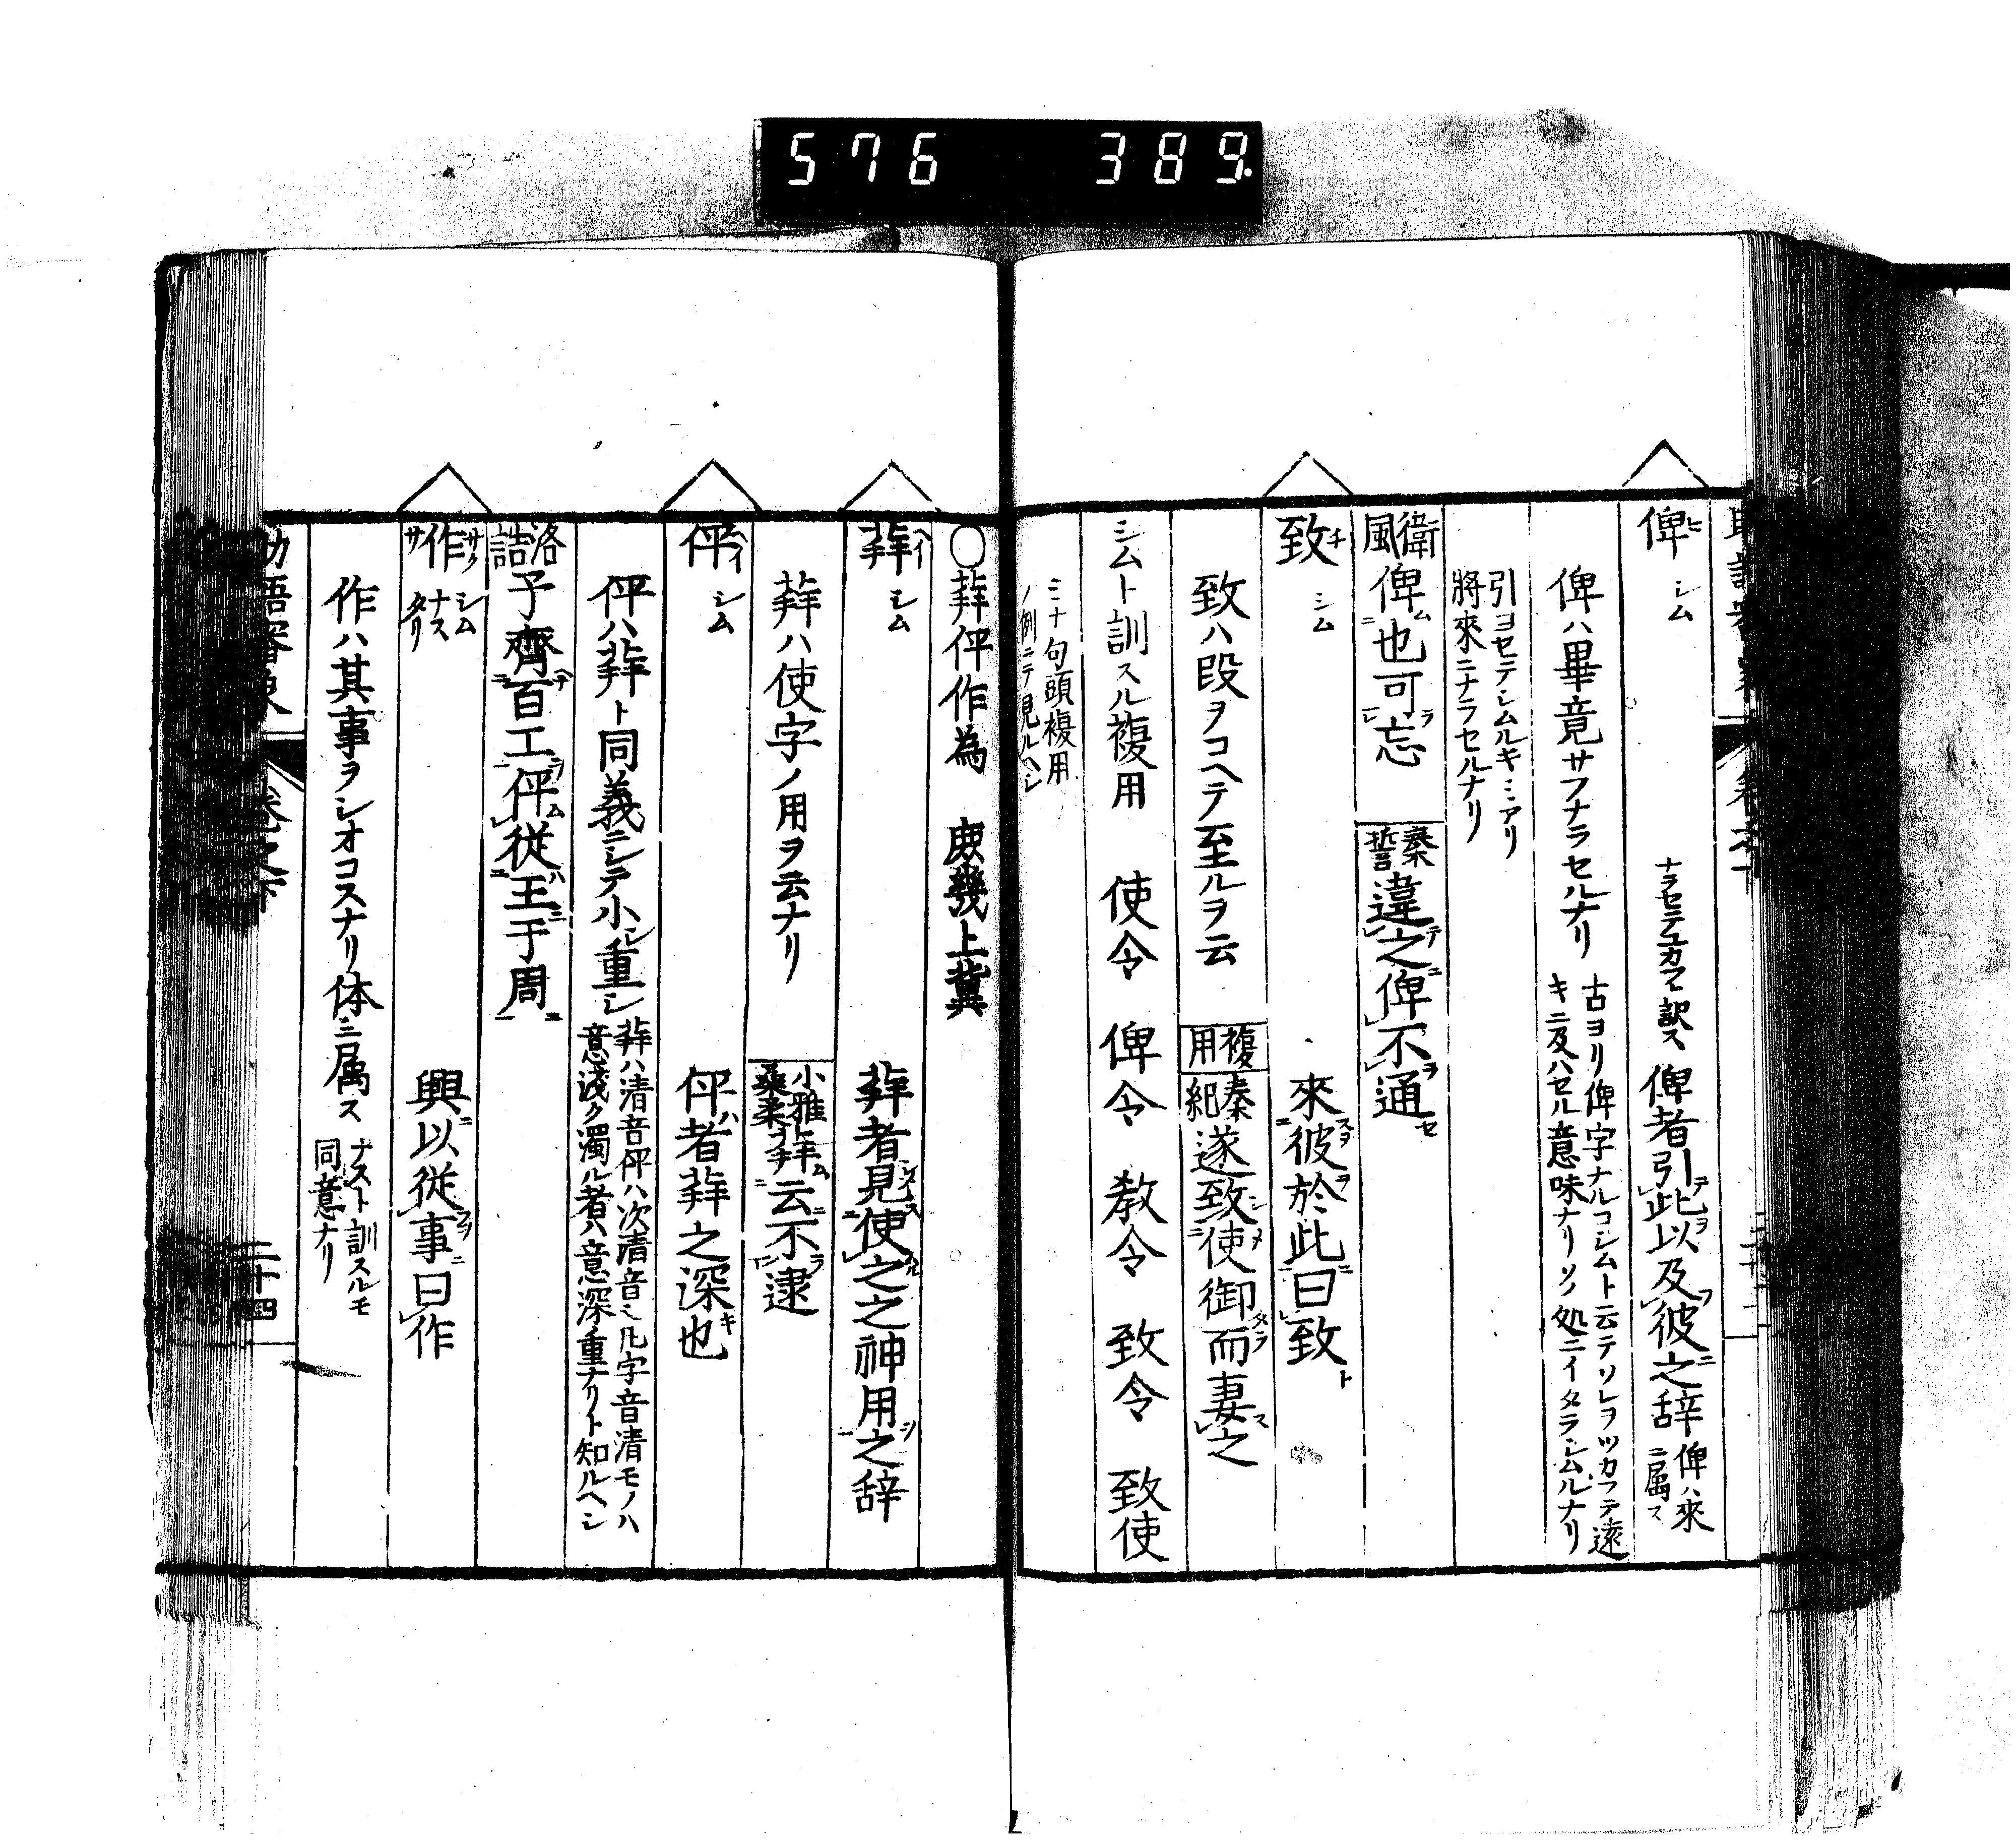 576 389.
俾 ヒ シム ナラセテユカマ訳ス 俾者引テ此ヲ以及フ彼ニ之辞 俾ハ來ニ属ス
俾ハ畢竟サフナラセルナリ 古ヨリ俾字ナルコシムト云テソレヲツカフテ遠キニ及ハセル意味ナリソノ処ニイタラシムルナリ
引ヨセテシムルキミアリ將來ニナラセルナリ
衛風 俾ム也可ラ忘 秦誓 違テ之俾ニ不ラ通セ
致 チ シム 來スヲ彼ヲ於此ニ曰致ト
致ハ段ヲコヘテ至ルヲ云 複用 秦紀 遂致シ使メ御タラ而妻ス之
シムト訓スル複用 使令 俾令 教令 致令 致使
ミナ句頭複用ノ例ニテ見ルヘシ
○拜伻作為 庶幾上冀
シム 者見使之之神用之辞
ハ使字ノ用ヲ云ナリ 小雅桑柔 云不逮
伻 ヘイ シム 伻ハ者之深キ也
伻ハ ト同義ニシテ小シ重シ ハ清音伻ハ次清音 凡字音清モノハ意淺ク濁ル者ハ意深ク重ナリト知ルヘシ
洛誥 予齊百工伻ム從ハ王ニ于周ニ
作 サク サ シム ナス タリ 興ニ以從事ニ曰作
作ハ其事ヲシオコスナリ体ニ属ス ナスト訓スルモ同意ナリ
二十四